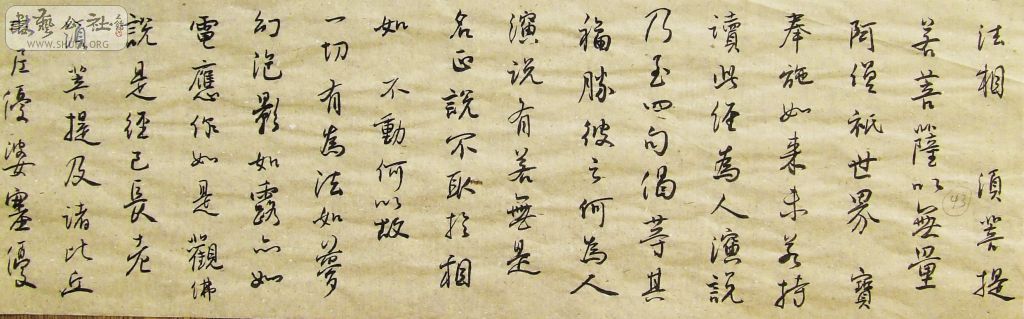 法相 須菩提
若菩薩以無量
阿僧祇世界 寶
奉施如来未若持
讀此経為人演説
乃至四句偈等其
福勝彼云何為人
演説有若無是
名正説不取於相
如 不動何以故
一切有為法如夢
幻泡影如露亦如
電應作如是觀佛
說是經已長老
須菩提及諸比丘
丘優婆塞優
43
社
WWW.SHUFA.ORG